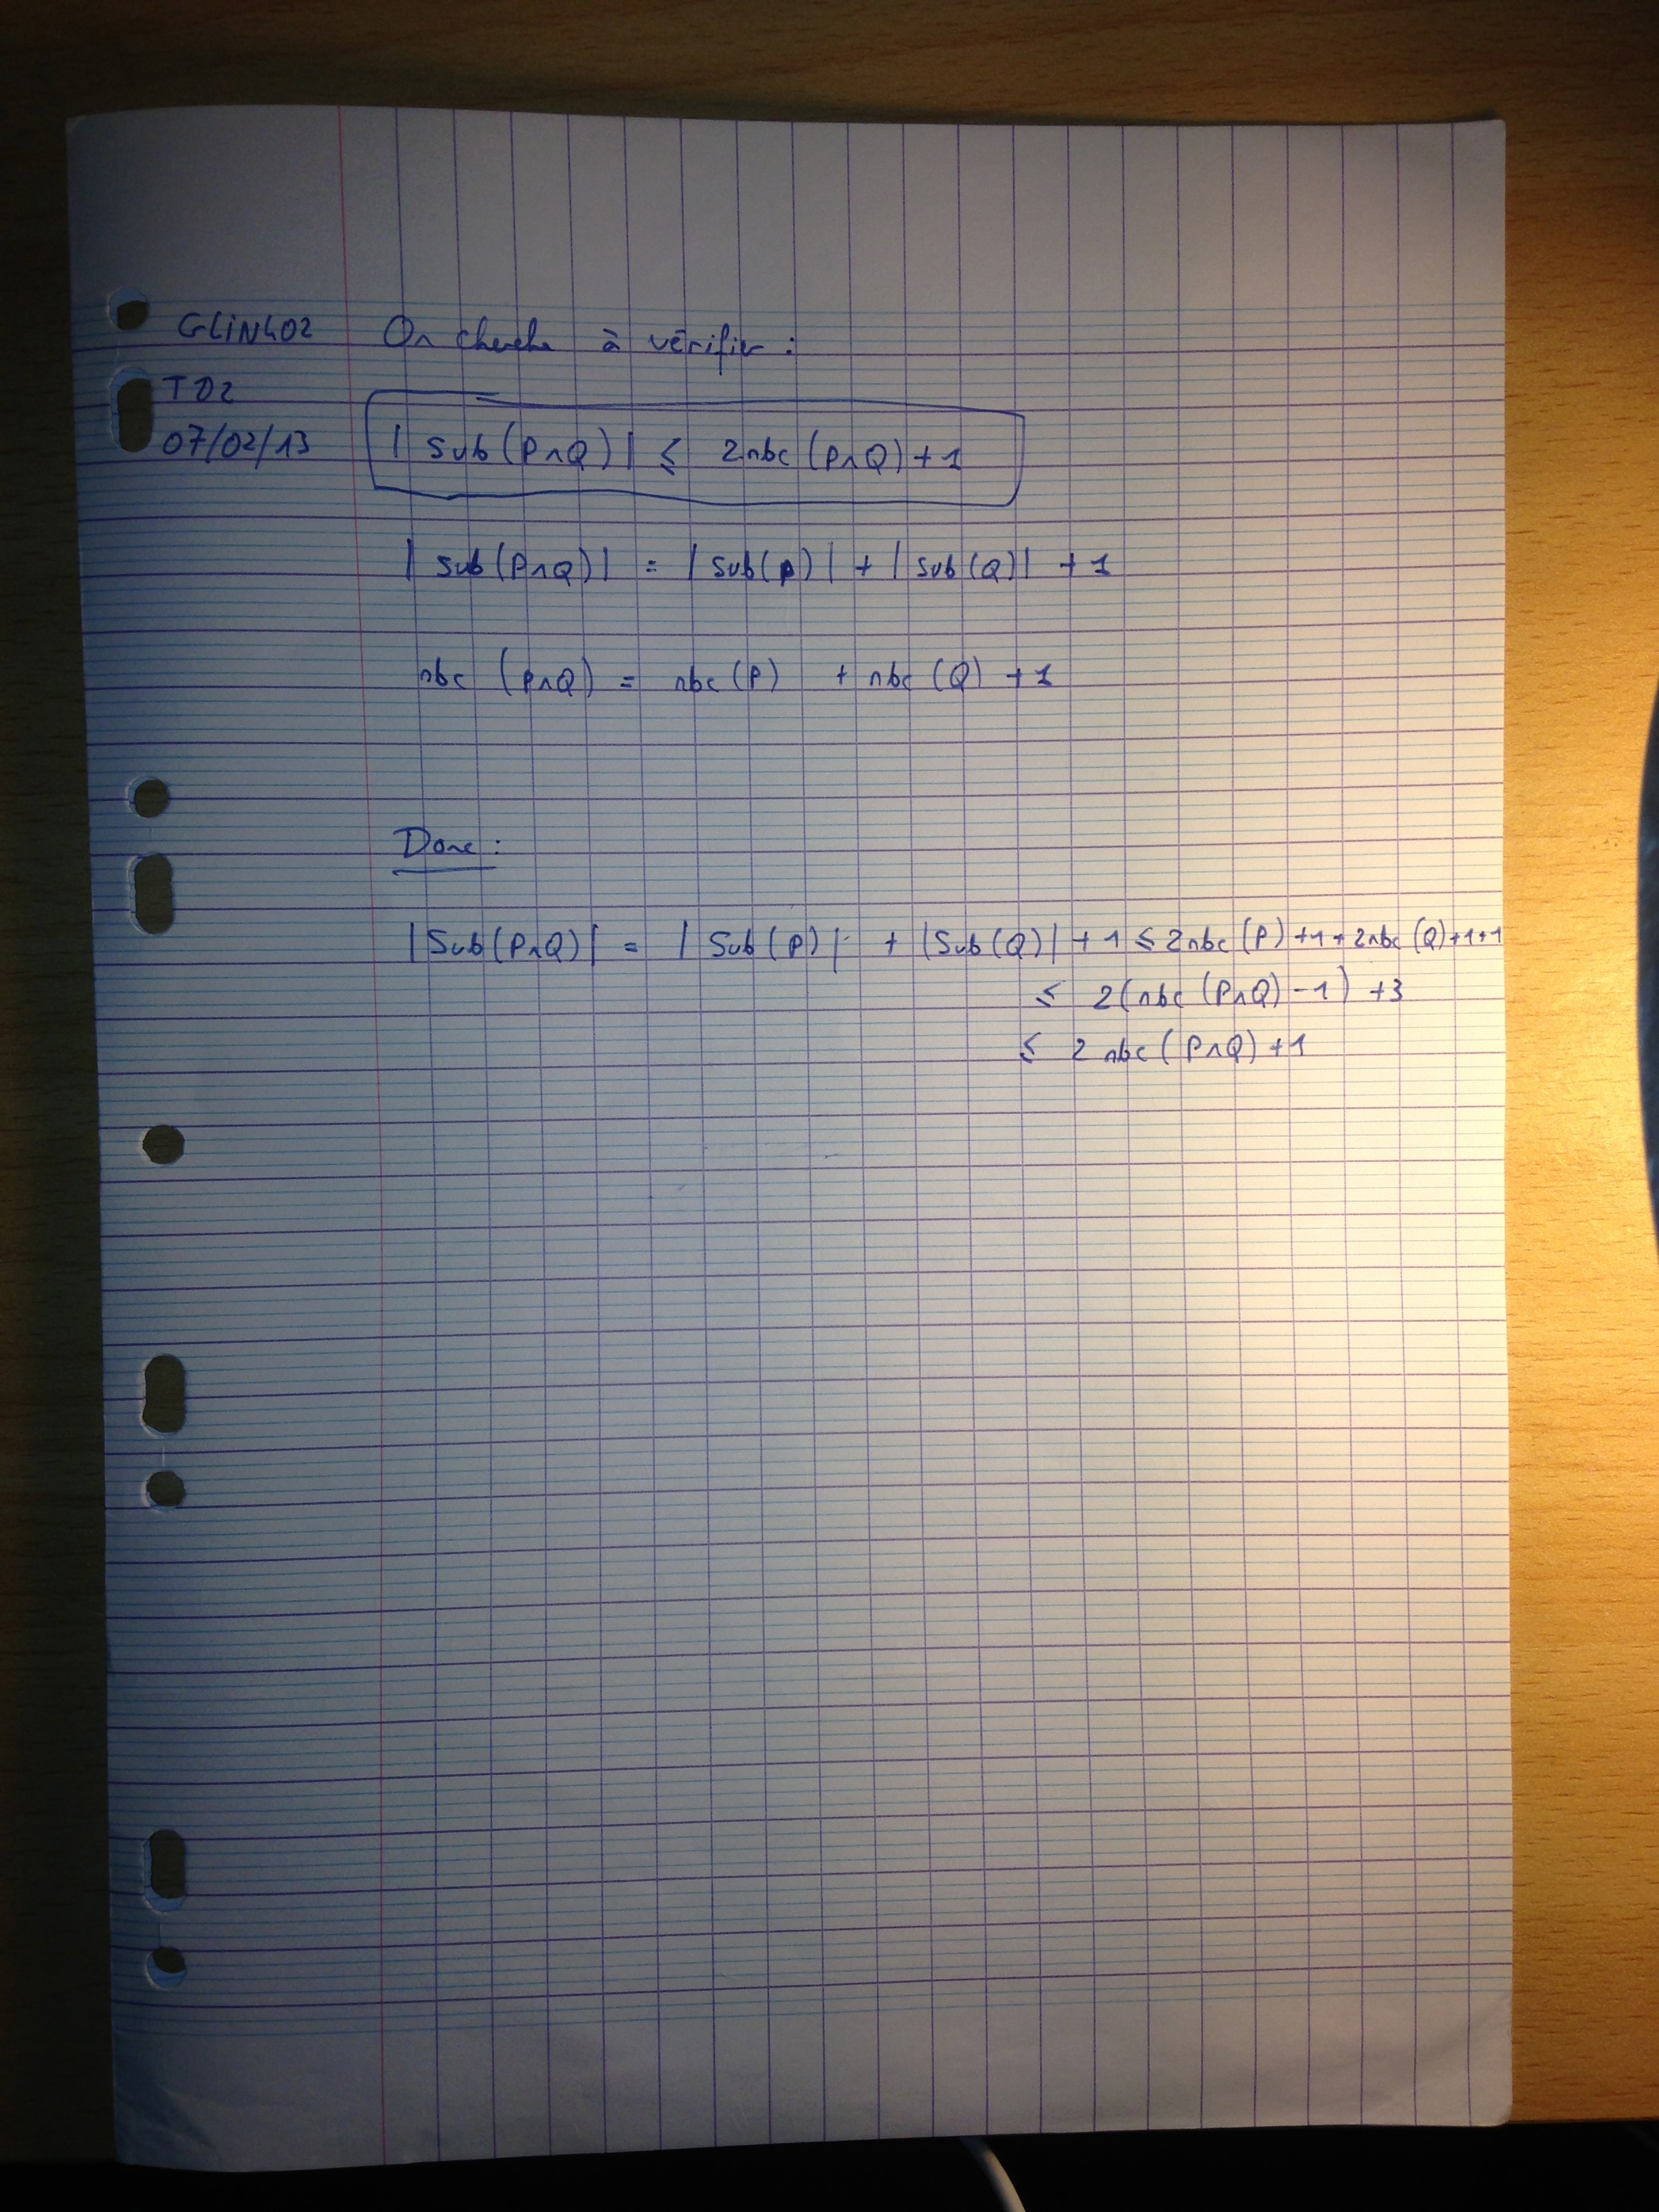 GLIN402
TD2
07/02/13
On cherche à vérifier :
| Sub(P∧Q) | ≤ 2nbc (P∧Q) + 1
| Sub(P∧Q) | = | Sub(P) | + | Sub(Q) | + 1
nbc (P∧Q) = nbc (P) + nbc (Q) + 1
Donc :
| Sub(P∧Q) | = | Sub(P) | + | Sub(Q) | + 1 ≤ 2nbc (P) + 1 + 2nbc (Q) + 1 + 1
≤ 2(nbc (P∧Q) - 1) + 3
≤ 2 nbc (P∧Q) + 1